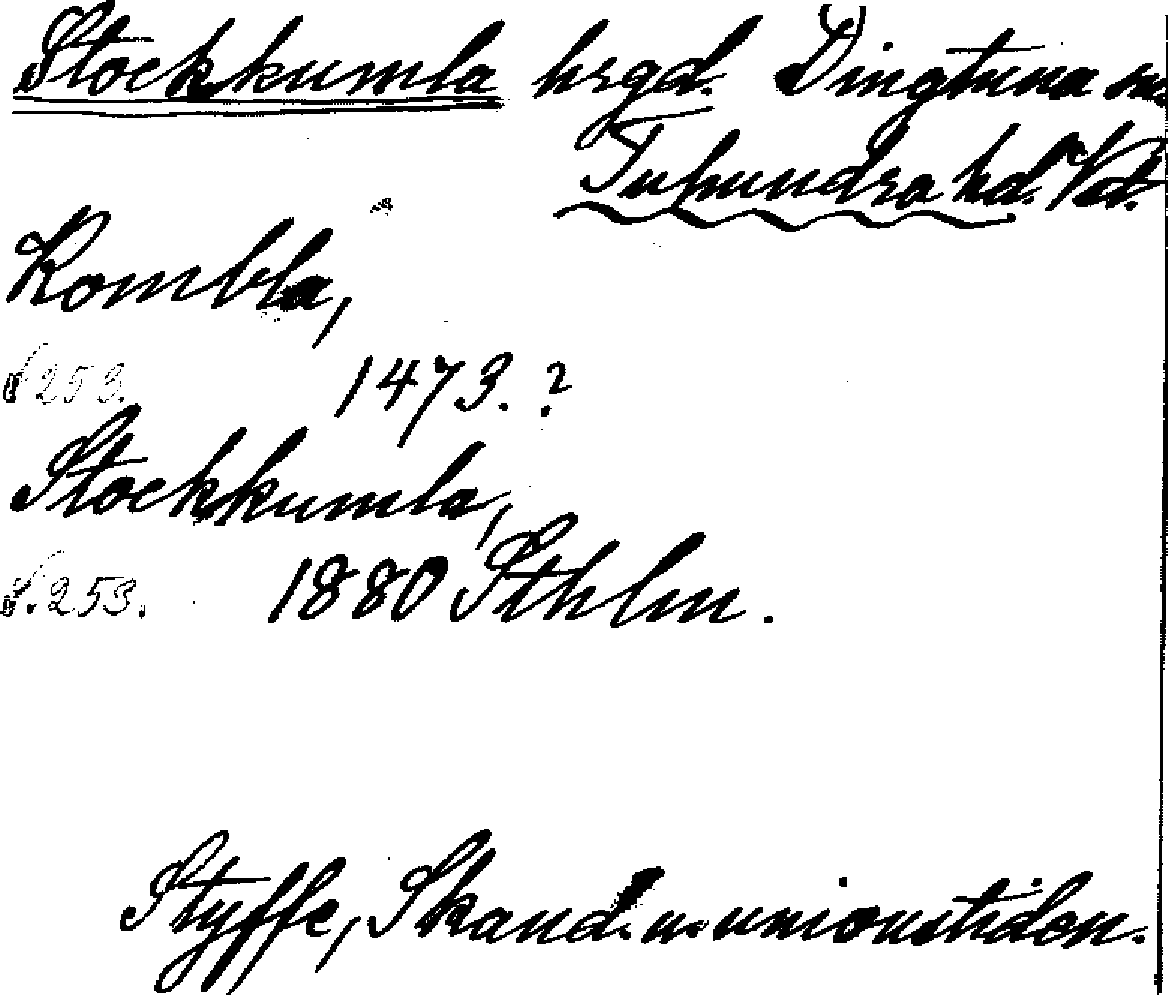 Stockkumla hrgd. Dingtuna sn.
Tuhundra hd. Vstm.
Kombla,
s 253. 1473. ?
Stockkumla,
s. 253. 1880 Sthlm.
Styffe, Skand. u. unionstiden.